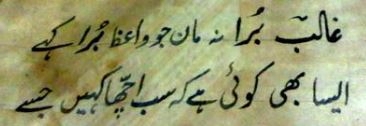 غالبؔ بُرا نہ مان جو واعظ بُرا کہے
ایسا بھی کوئی ہے کہ سب اچّھا کہیں جسے